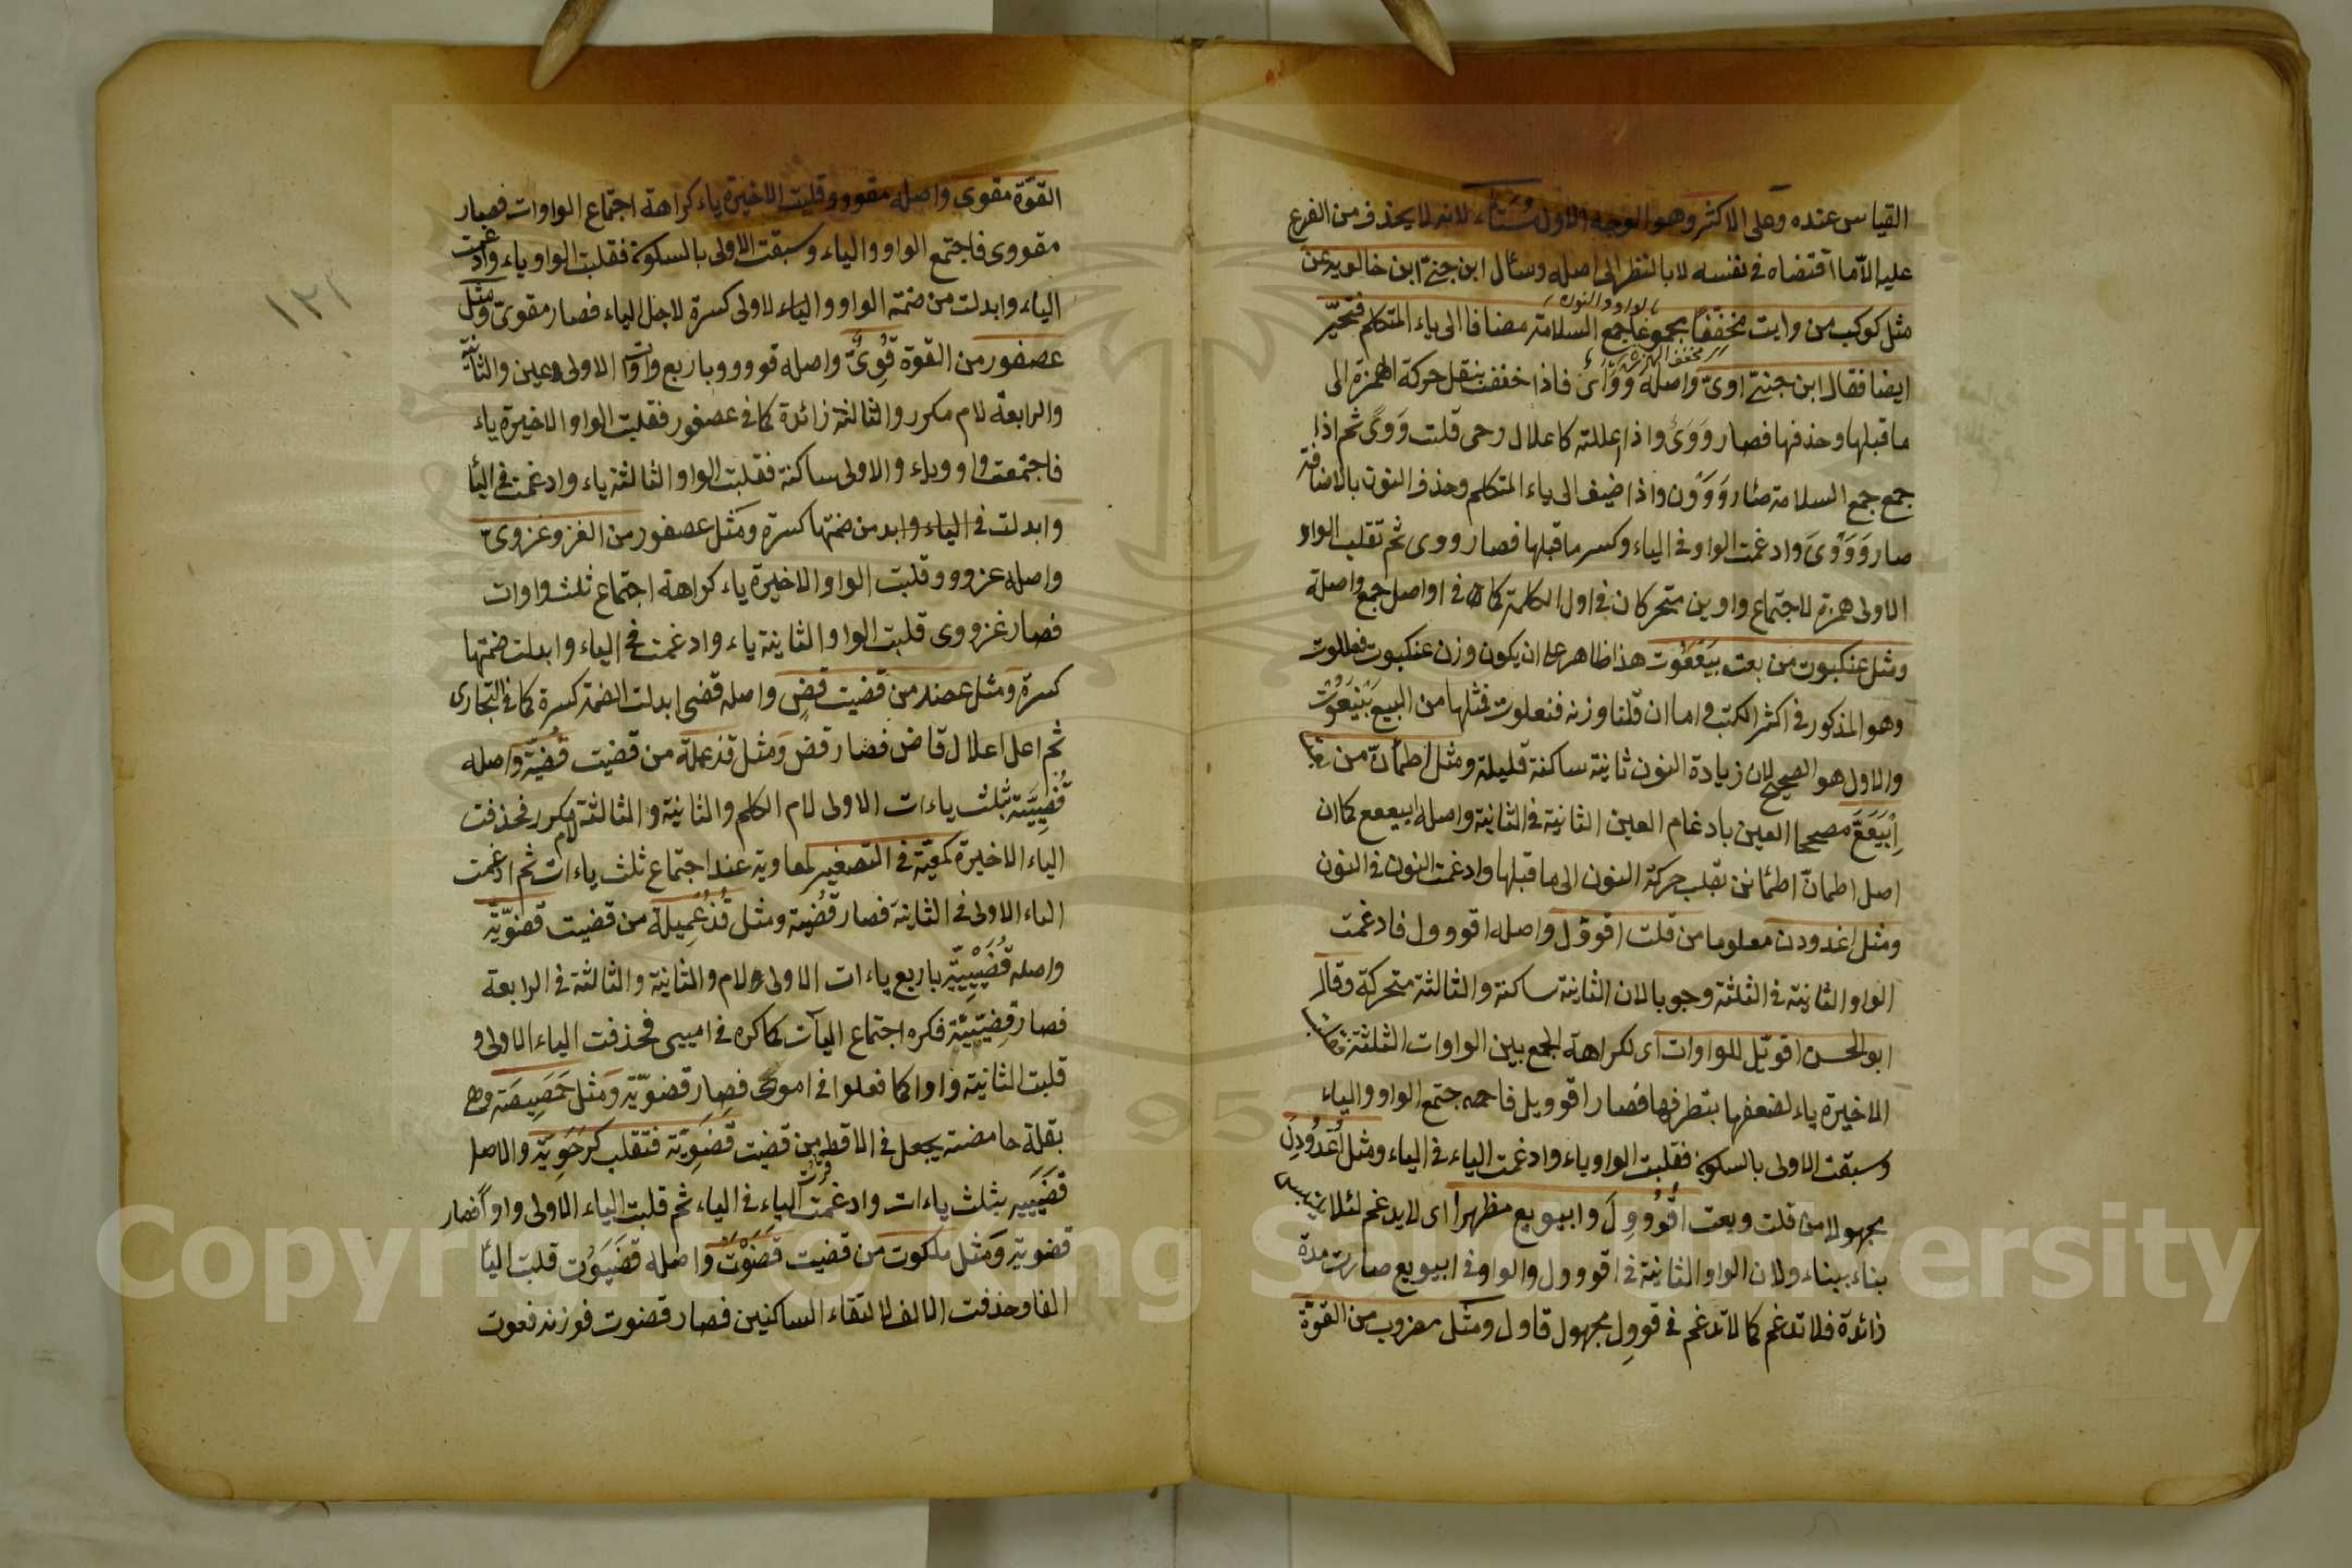 القياس عنده وعلى الاكثر وهو الوجه الاول لانه لا يحذف من الفرع
عليه الا ما اقتضاه في نفسه لا بالنظر الى اصله وسئال ابن جنى ابن خالويه عن
بالواو والنون
مثل كوكب من وايت مخففا مجموعا جمع السلامة مضافا الى ياء المتكلم فتحيّر
مخفف الهمزة
ايضا فقال ابن جنى اوىّ واصله وَوْأى فاذا خفف بنقل حركة الهمزة الى
ما قبلها وحذفها فصار وَوَىٌ واذا اعللته كاعلال رحى قلت وَوًى ثم اذا
جمع جمع السلامة صار وَوَوْن واذا ضيف الى ياء المتكلم وحذف النون بالاضافة
صار وَوَوْىَ وادغمت الواو في الياء وكسر ما قبلها فصار ووى ثم تقلب الواو
الاولى همزة لاجتماع واوين متحركان في اول الكلمة كما في اواصل جمع واصلة
ومثل عنكبوت من بعت بَيْعَعُوت هذا ظاهر على ان يكون وزن عنكبوت فعللوت
وهو المذكور في اكثر الكتب واما ان قلنا وزنه فنعلوت فمثلها من البيع بَنْيَعُوت
والاول هو الصحيح لان زيادة النون ثانية ساكنة قليلة ومثل اطمأنّ من
اِبْيَعَعَّ مصححا العين بادغام العين الثانية في الثانية واصله ابيععع كما ان
اصل اطمأنّ اطمأنن بقلب حركة النون الى ما قبلها وادغمت النون في النون
ومثل اغدودن معلوما من قلت اقووّل واصله اقووول فادغمت
الواو الثانية في الثلثة وجوبا لان الثانية ساكنة والثالثة متحركة وقال
ابو الحسن اقويّل للواوات اى لكراهة الجمع بين الواوات الثلثة
الاخيرة ياء لضعفها بتطرفها فصار اقوويل جتمع الواو والياء
وسبقت الاولى بالسكون فقلبت الواو ياء وادغمت الياء في الياء ومثل اُغْدُودِنَ
مجهولا من قلت وبعت اُقْوُووِلَ وابيويع مظهرا اى لا يدغم لئلا يلتبس
بناء ببناء ولان الواو الثانية في اقووول والواو في ابيويع صارت مدة
زائدة فلا تدغم كما لا تدغم في قووِل مجهول قاول ومثل مضروب من القوّة
القوّة مقوى واصله مقووو وقلبت الاخيرة ياء كراهة اجتماع الواوات فصار
مقووى فاجتمع الواو والياء وسبقت الاولى بالسكون فقلبت الواو ياء وادغمت
الياء وابدلت من ضمة الواو والياء لاولى كسرة لاجل الياء فصار مقوىّ ومثل
عصفور من القوة قُوِىٌّ واصله قوووو باربع واوات الاولى عين والثانية
والرابعة لام مكرر والثالثة زائدة كما في عصفور فقلبت الواو الاخيرة ياء
فاجتمعت واو وياء والاولى ساكنة فقلبت الواو الثالثة ياء وادغمت في اليا
وابدلت في الياء وابد من ضمتها كسرة ومثل عصفور من الغزو غزوىّ
واصله غزووو وقلبت الواو الاخيرة ياء كراهة اجتماع ثلث واوات
فصار غزووى قلبت الواو الثانية ياء وادغمت في الياء وابدلت ضمتها
كسرة ومثل عضد من قضيت قضٍ واصله قضى ابدلت الضمة كسرة كما في التجارى
ثم اعل اعلال قاض فصار قض ومثل قذعملة من قضيت قُضَيّة واصله
قُضَيِّيَة بثلث ياءات الاولى لام الكلم والثانية والثالثة لام مكرر فحذفت
الياء الاخيرة كمعيّة في التصغير لمعاوية عند اجتماع ثلث ياءات ثم ادغمت
الياء الاولى في الثانية فصار قُضَيّة ومثل قُذَعْمِيلة من قضيت قضويّة
واصله قُضَيْيِيّة باربع ياءات الاولى لام والثانية والثالثة في الرابعة
فصار قضيّيّة فكره اجتماع اليآت كما كره في امييى فحذفت الياء الاولى و
قلبت الثانية واوا كما فعلوا في اموى فصار قضويّة ومثل حَمَصِيصَة وهى
بقلة حامضة يجعل في الاقط من قضيت قَضَوِيّة فتقلب كرَحَوِيّة والاصل
قَضَيِيه بثلث ياءات وادغمت الياء في الياء ثم قلبت الياء الاولى واوا فصار
قضوية ومثل ملكوت من قضيت قَضَوْت واصله قضَيَوُت قلبت اليا
الفا وحذفت الالف لالتقاء الساكنين فصار قضوت فوزنه فعوت
١٢١
Copyright © King Saud University